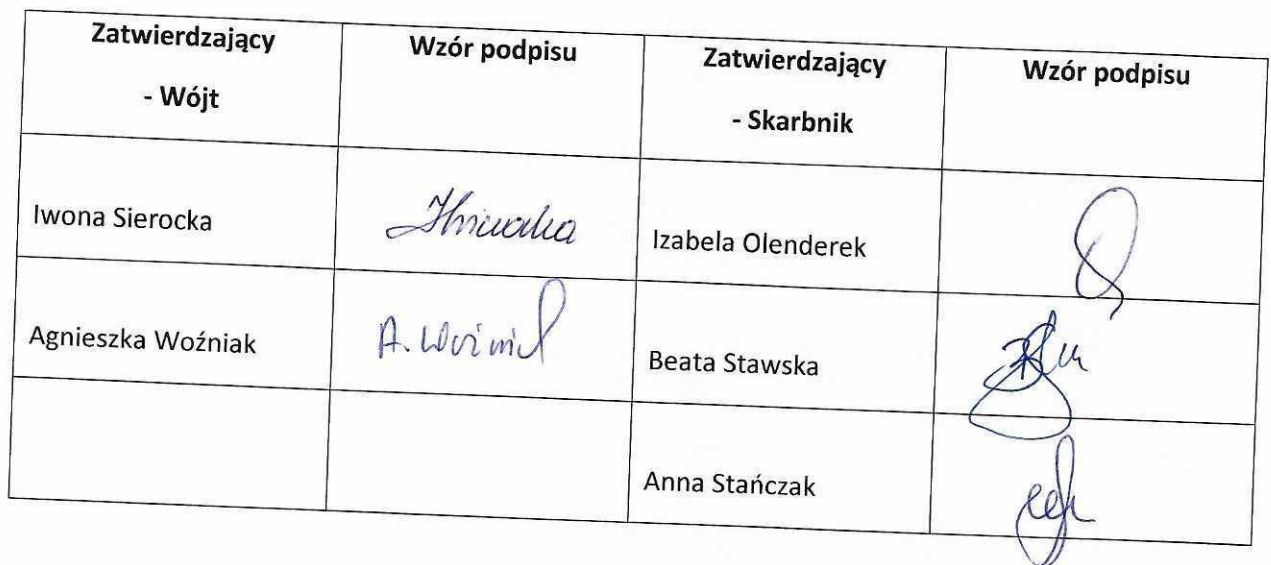 Zatwierdzający
- Wójt
Wzór podpisu
Zatwierdzający
- Skarbnik
Wzór podpisu
Iwona Sierocka
Izabela Olenderek
Agnieszka Woźniak
A. Woźniak
Beata Stawska
Anna Stańczak